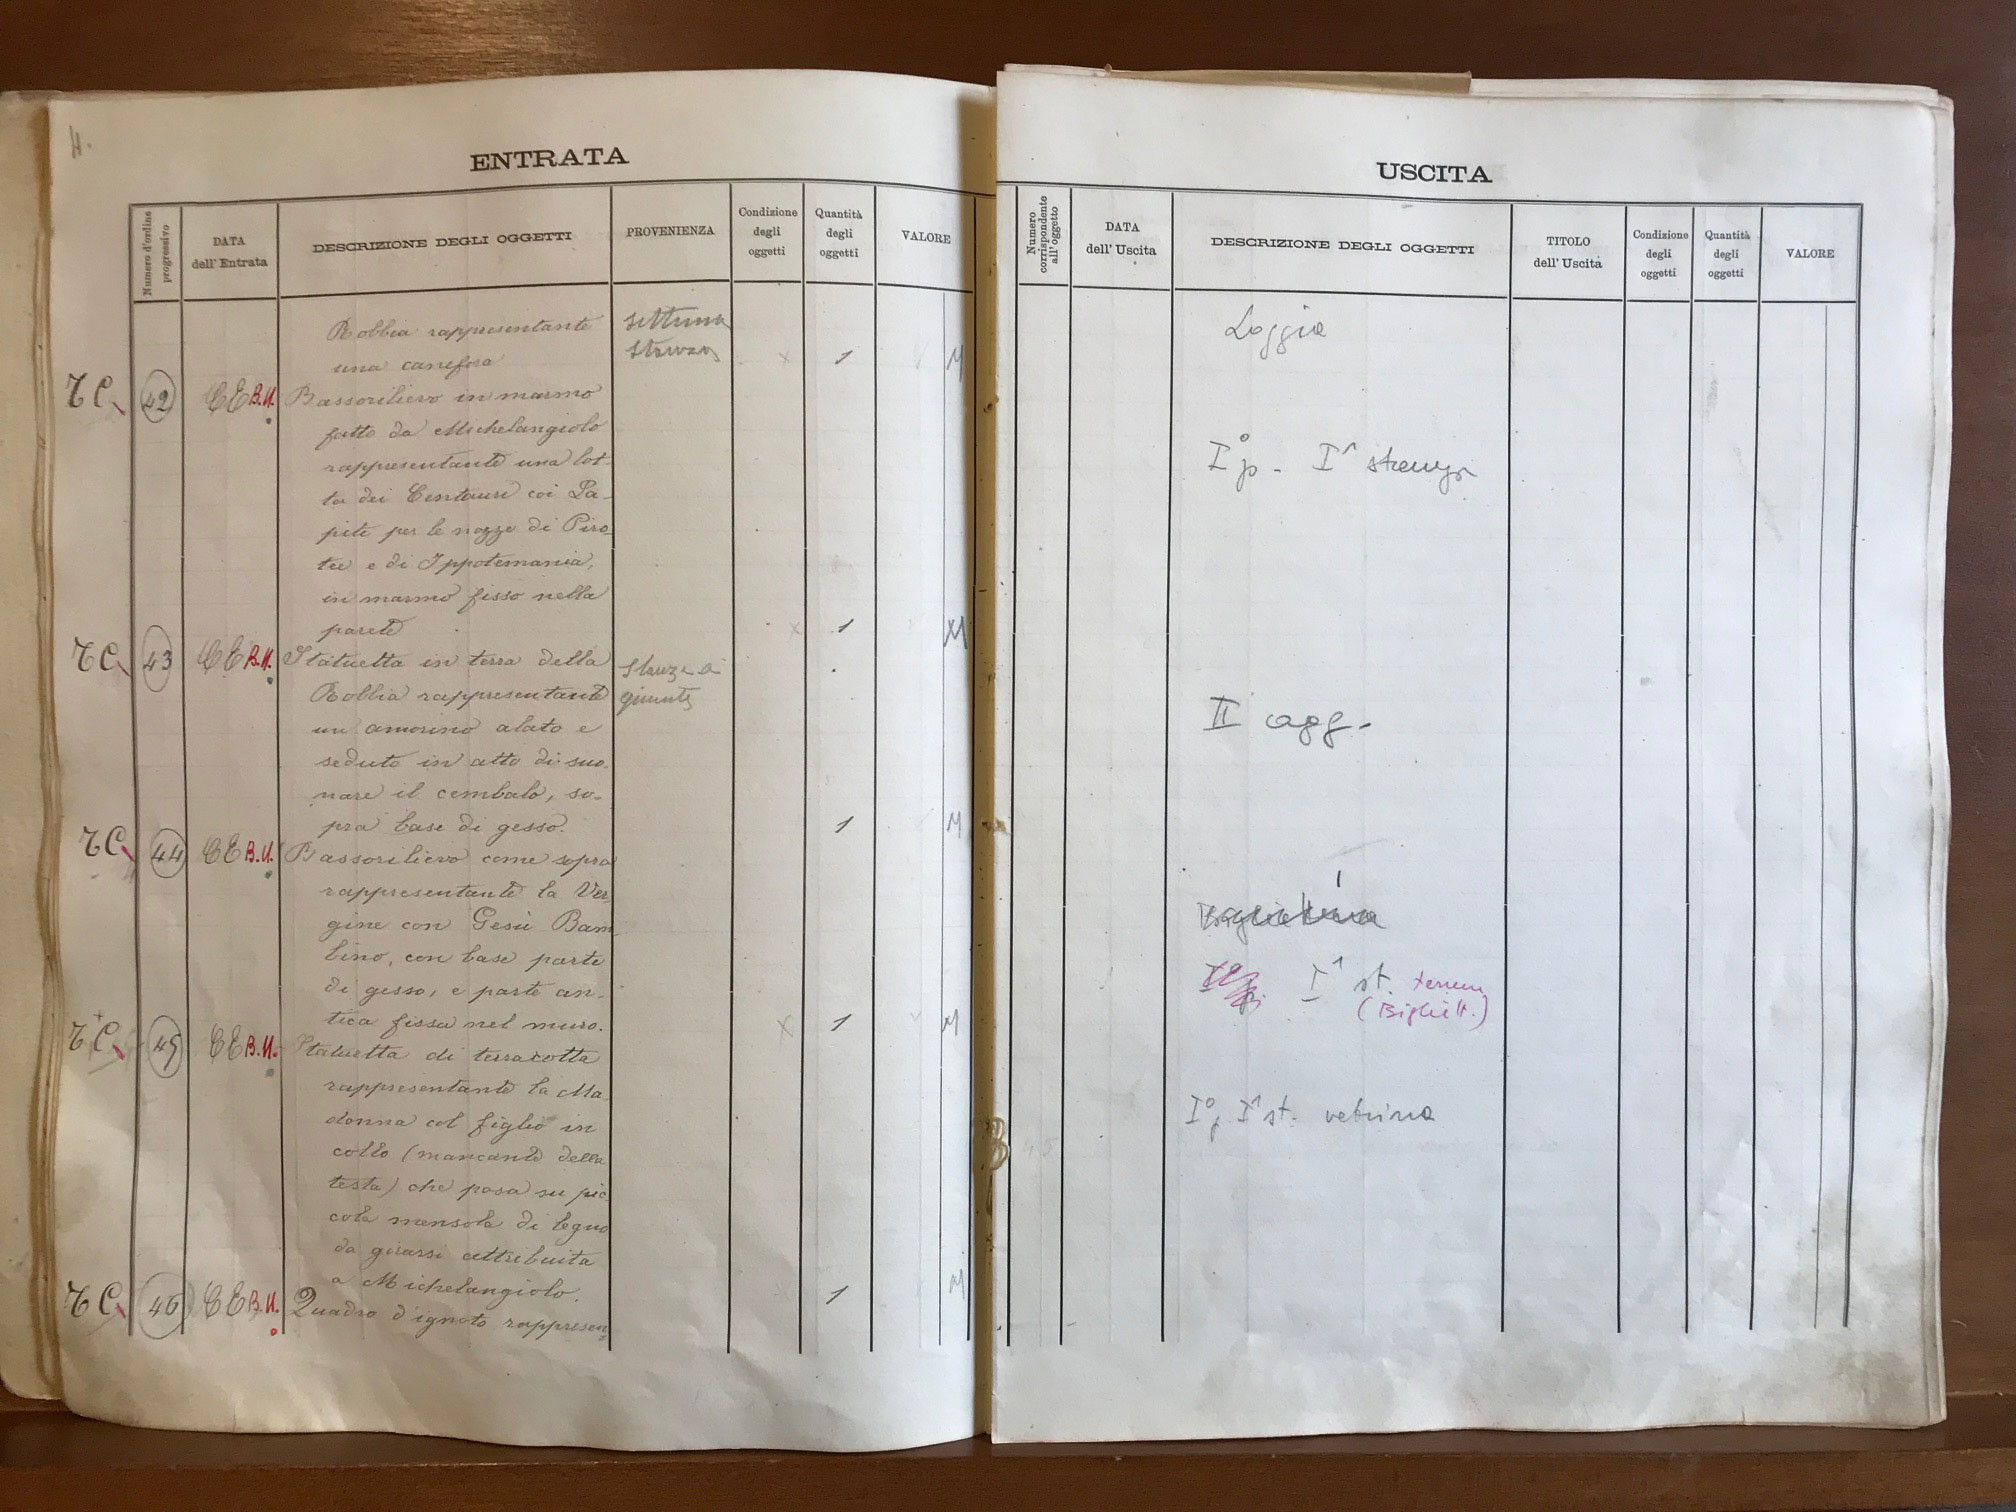 4.
ENTRATA
Numero d'ordine progressivo
DATA
dell'Entrata
DESCRIZIONE DEGLI OGGETTI
PROVENIENZA
Condizione
degli
oggetti
Quantità
degli
oggetti
VALORE
Robbia rappresentante
settima
una canefora
stanza
1
M
TC 42 CE B.U. Bassorilievo in marmo
fatto da Michelangiolo
rappresentante una lot-
ta dei Centauri coi La-
piti per le nozze di Piro-
teo e di Ippotemania,
in marmo fisso nella
parete
1
M
TC 43 CE B.U. Statuetta in terra della
stanza a
Robbia rappresentante
giunta
un amorino alato e
seduto in atto di suo-
nare il cembalo, so-
pra base di gesso.
1
M
TC 44 CE B.U. Bassorilievo come sopra
rappresentante la Ver-
gine con Gesù Bam
bino, con base parte
di gesso, e parte an-
tica fissa nel muro.
1
M
TC 45 CE B.U. Statuetta di terracotta
rappresentante la Ma
donna col figlio in
collo (mancante della
testa) che posa su pic
cola mensola di legno
da girarsi attribuita
a Michelangiolo.
1
M
TC 46 CE B.U. Quadro d'ignoto rappresen=
USCITA
Numero
corrispondente
all'oggetto
DATA
dell'Uscita
DESCRIZIONE DEGLI OGGETTI
TITOLO
dell'Uscita
Condizione
degli
oggetti
Quantità
degli
oggetti
VALORE
Loggia
I° p. I^ stanza
II agg.
Biglietteria
I° p. I^ st. terreno
(Bigliett.)
I° p I^ st. vetrina
45